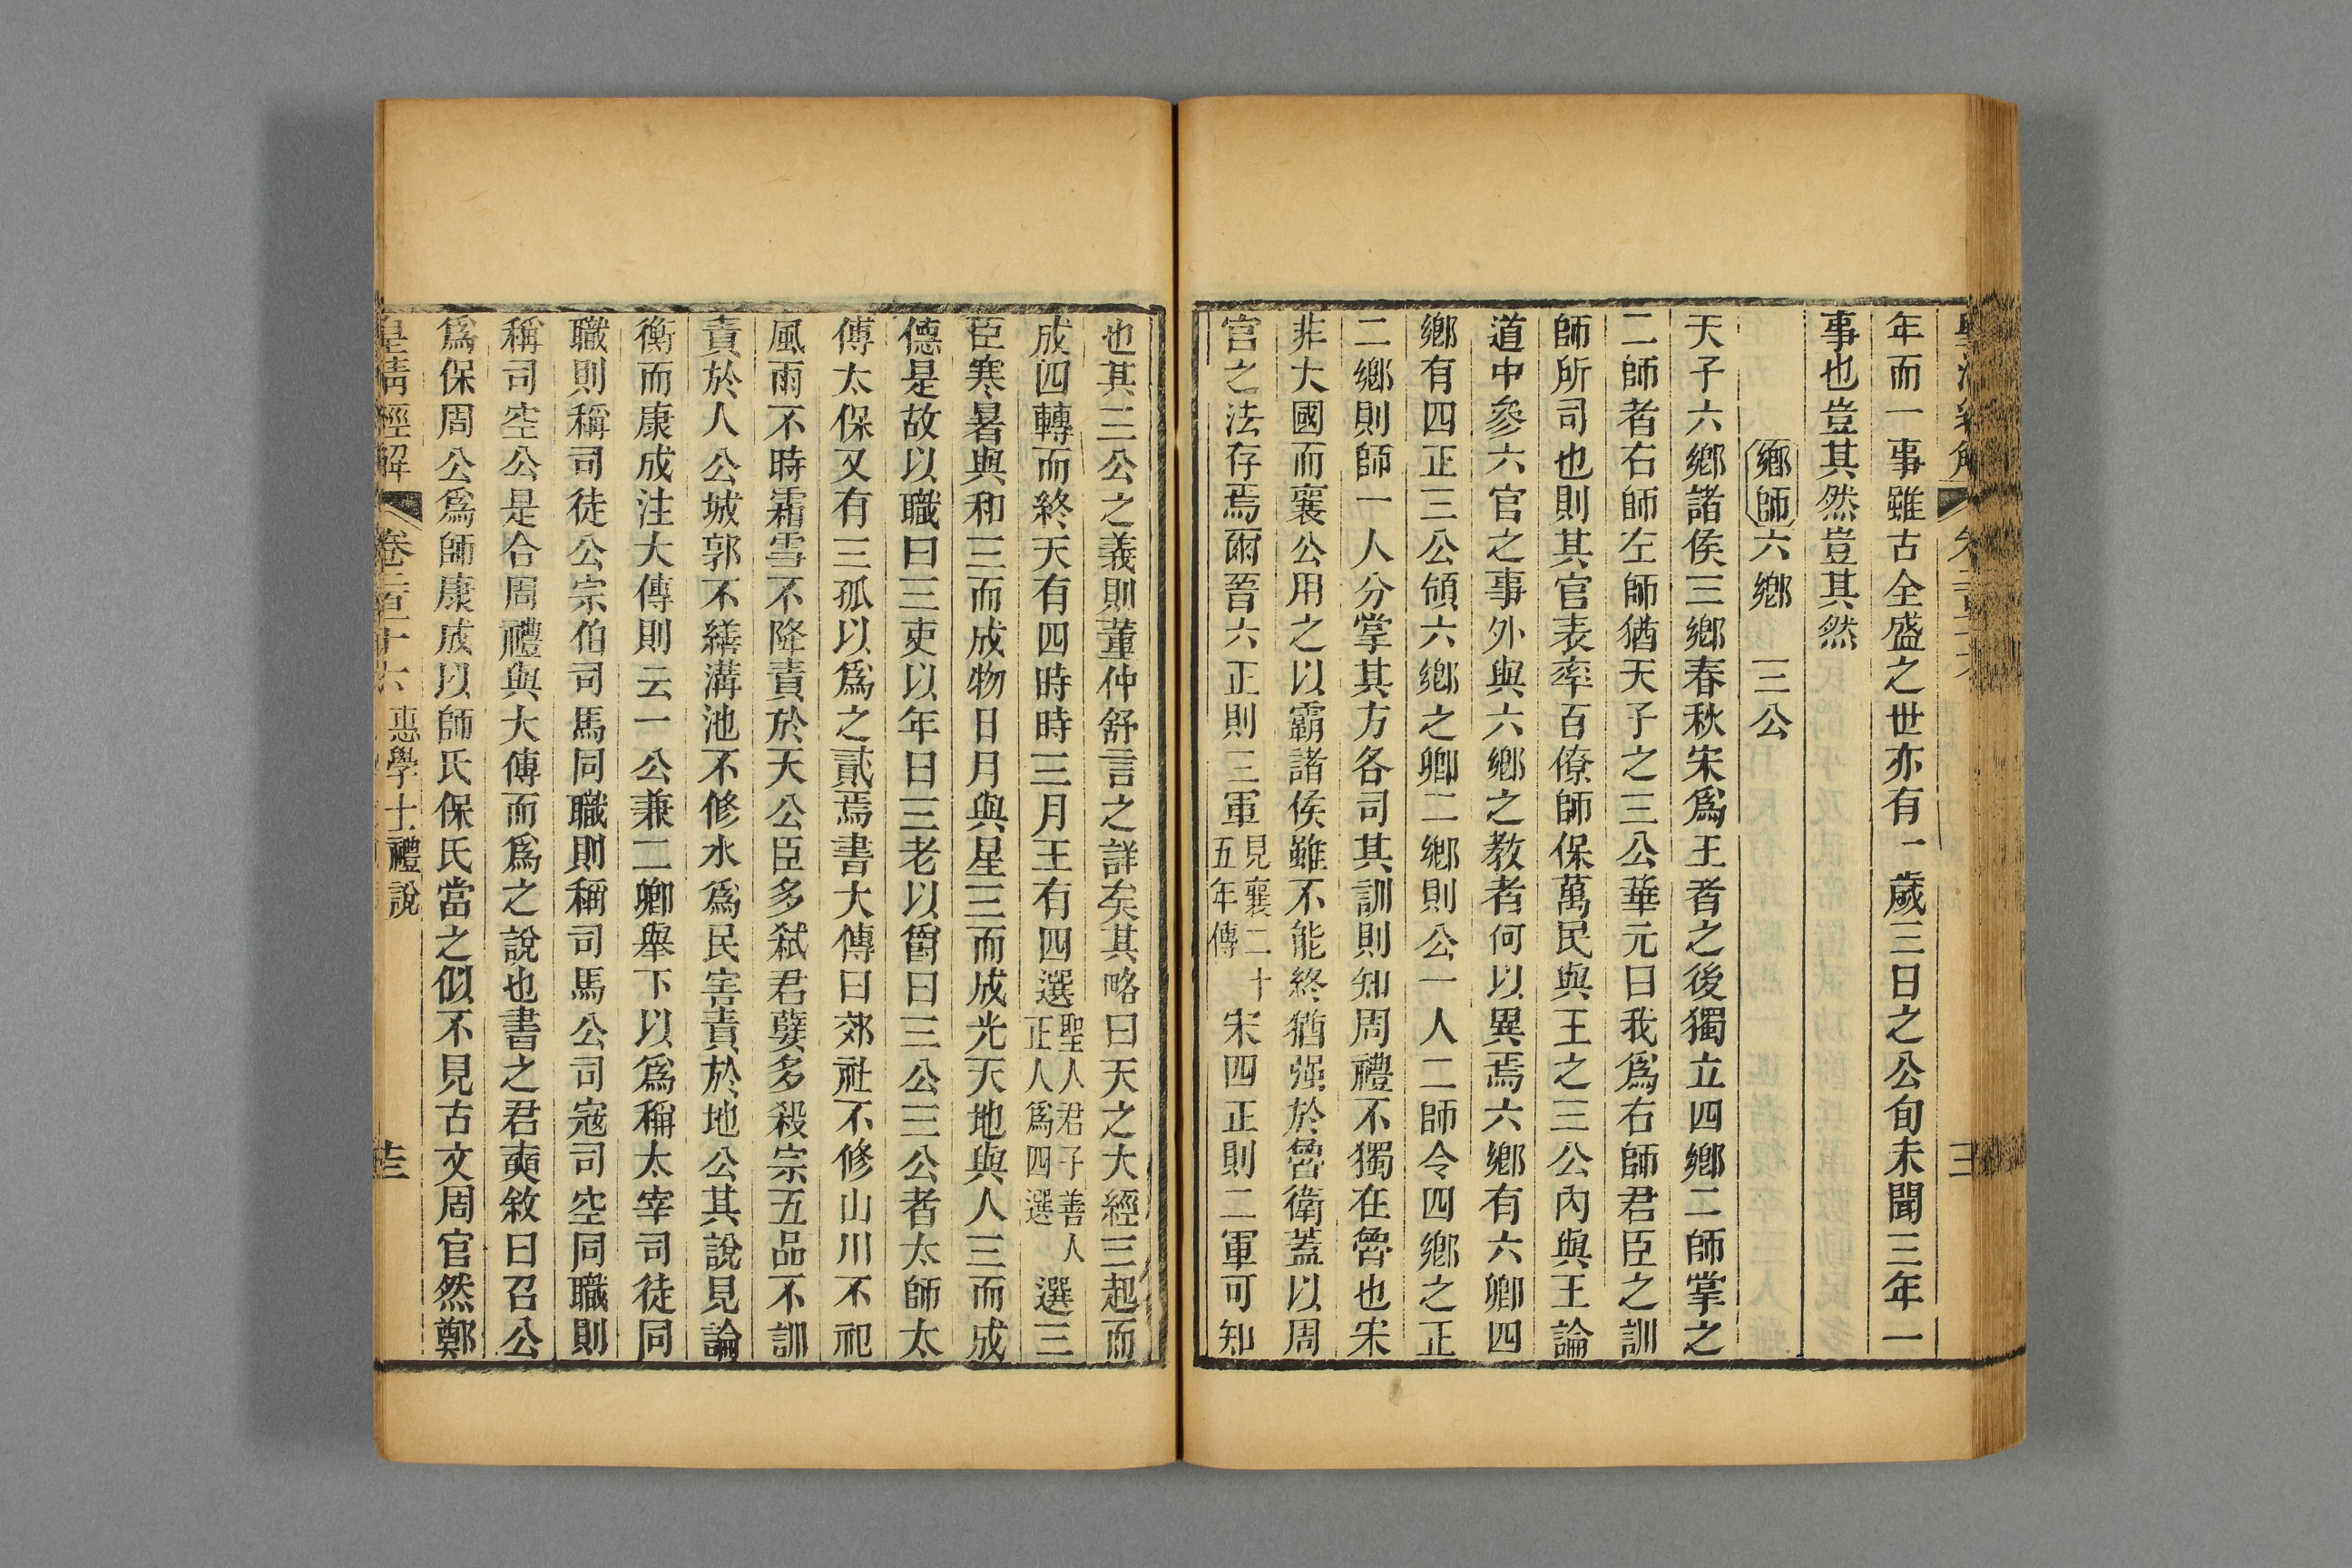 年而一事雖古全盛之世亦有一歲三日之公旬未聞三年一
事也豈其然豈其然
鄉師六鄉 三公
天子六鄉諸侯三鄉春秋宋爲王者之後獨立四鄉二師掌之
二師者右師左師猶天子之三公華元曰我爲右師君臣之訓
師所司也則其官表率百僚師保萬民與王之三公內與王論
道中參六官之事外與六鄉之教者何以異焉六鄉有六卿四
鄉有四正三公領六鄉之卿二鄉則公一人二師令四鄉之正
二鄉則師一人分掌其方各司其訓則知周禮不獨在魯也宋
非大國而襄公用之以霸諸侯雖不能終猶强於魯衛蓋以周
官之法存焉爾晉六正則三軍見襄二十五年傳宋四正則二軍可知
也其三公之義則董仲舒言之詳矣其略曰天之大經三起而
成四轉而終天有四時時三月王有四選聖人君子善人正人爲四選選三
臣寒暑與和三而成物日月與星三而成光天地與人三而成
德是故以職曰三吏以年曰三老以爵曰三公三公者太師太
傅太保又有三孤以爲之貳焉書大傳曰郊社不修山川不祀
風雨不時霜雪不降責於天公臣多弑君孽多殺宗五品不訓
責於人公城郭不繕溝池不修水爲民害責於地公其說見論
衡而康成注大傳則云一公兼二卿舉下以爲稱太宰司徒同
職則稱司徒公宗伯司馬同職則稱司馬公司寇司空同職則
稱司空公是合周禮與大傳而爲之說也書之君奭敘曰召公
爲保周公爲師康成以師氏保氏當之似不見古文周官然鄭
皇清經解 卷二百二十六 惠學士禮說